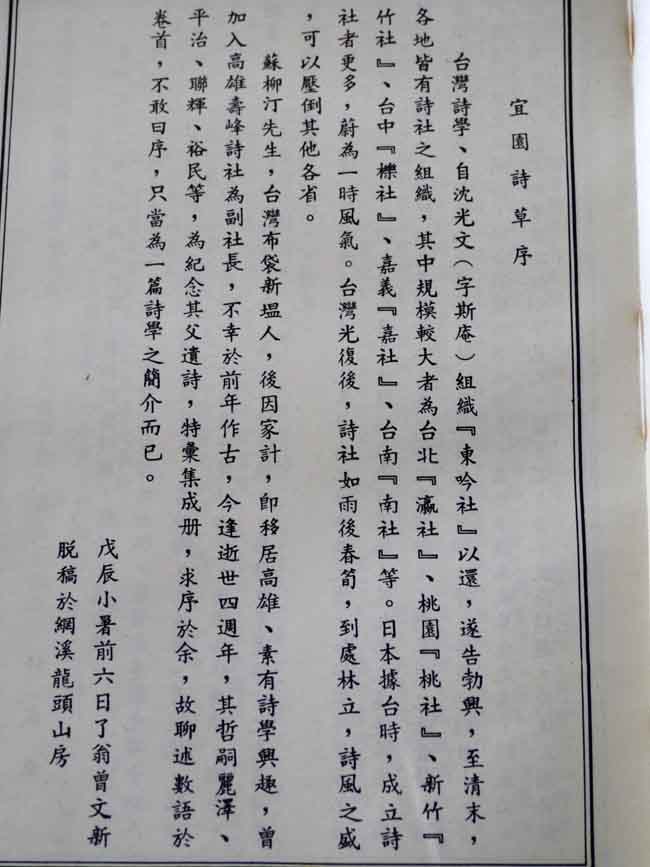 宜園詩草序
台灣詩學、自沈光文（字斯庵）組織『東吟社』以還，遂告勃興，至清末，
各地皆有詩社之組織，其中規模較大者為台北『瀛社』、桃園『桃社』、新竹『
竹社』、台中『櫟社』、嘉義『嘉社』、台南『南社』等。日本據台時，成立詩
社者更多，蔚為一時風氣。台灣光復後，詩社如雨後春筍，到處林立，詩風之盛
，可以壓倒其他各省。
蘇柳汀先生，台灣布袋新塭人，後因家計，即移居高雄、素有詩學興趣，曾
加入高雄壽峰詩社為副社長，不幸於前年作古，今逢逝世四週年，其哲嗣麗澤、
平治、聯輝、裕民等，為紀念其父遺詩，特彙集成册，求序於余，故聊述數語於
卷首，不敢曰序，只當為一篇詩學之簡介而已。
戊辰小暑前六日了翁曾文新
脫稿於網溪龍頭山房